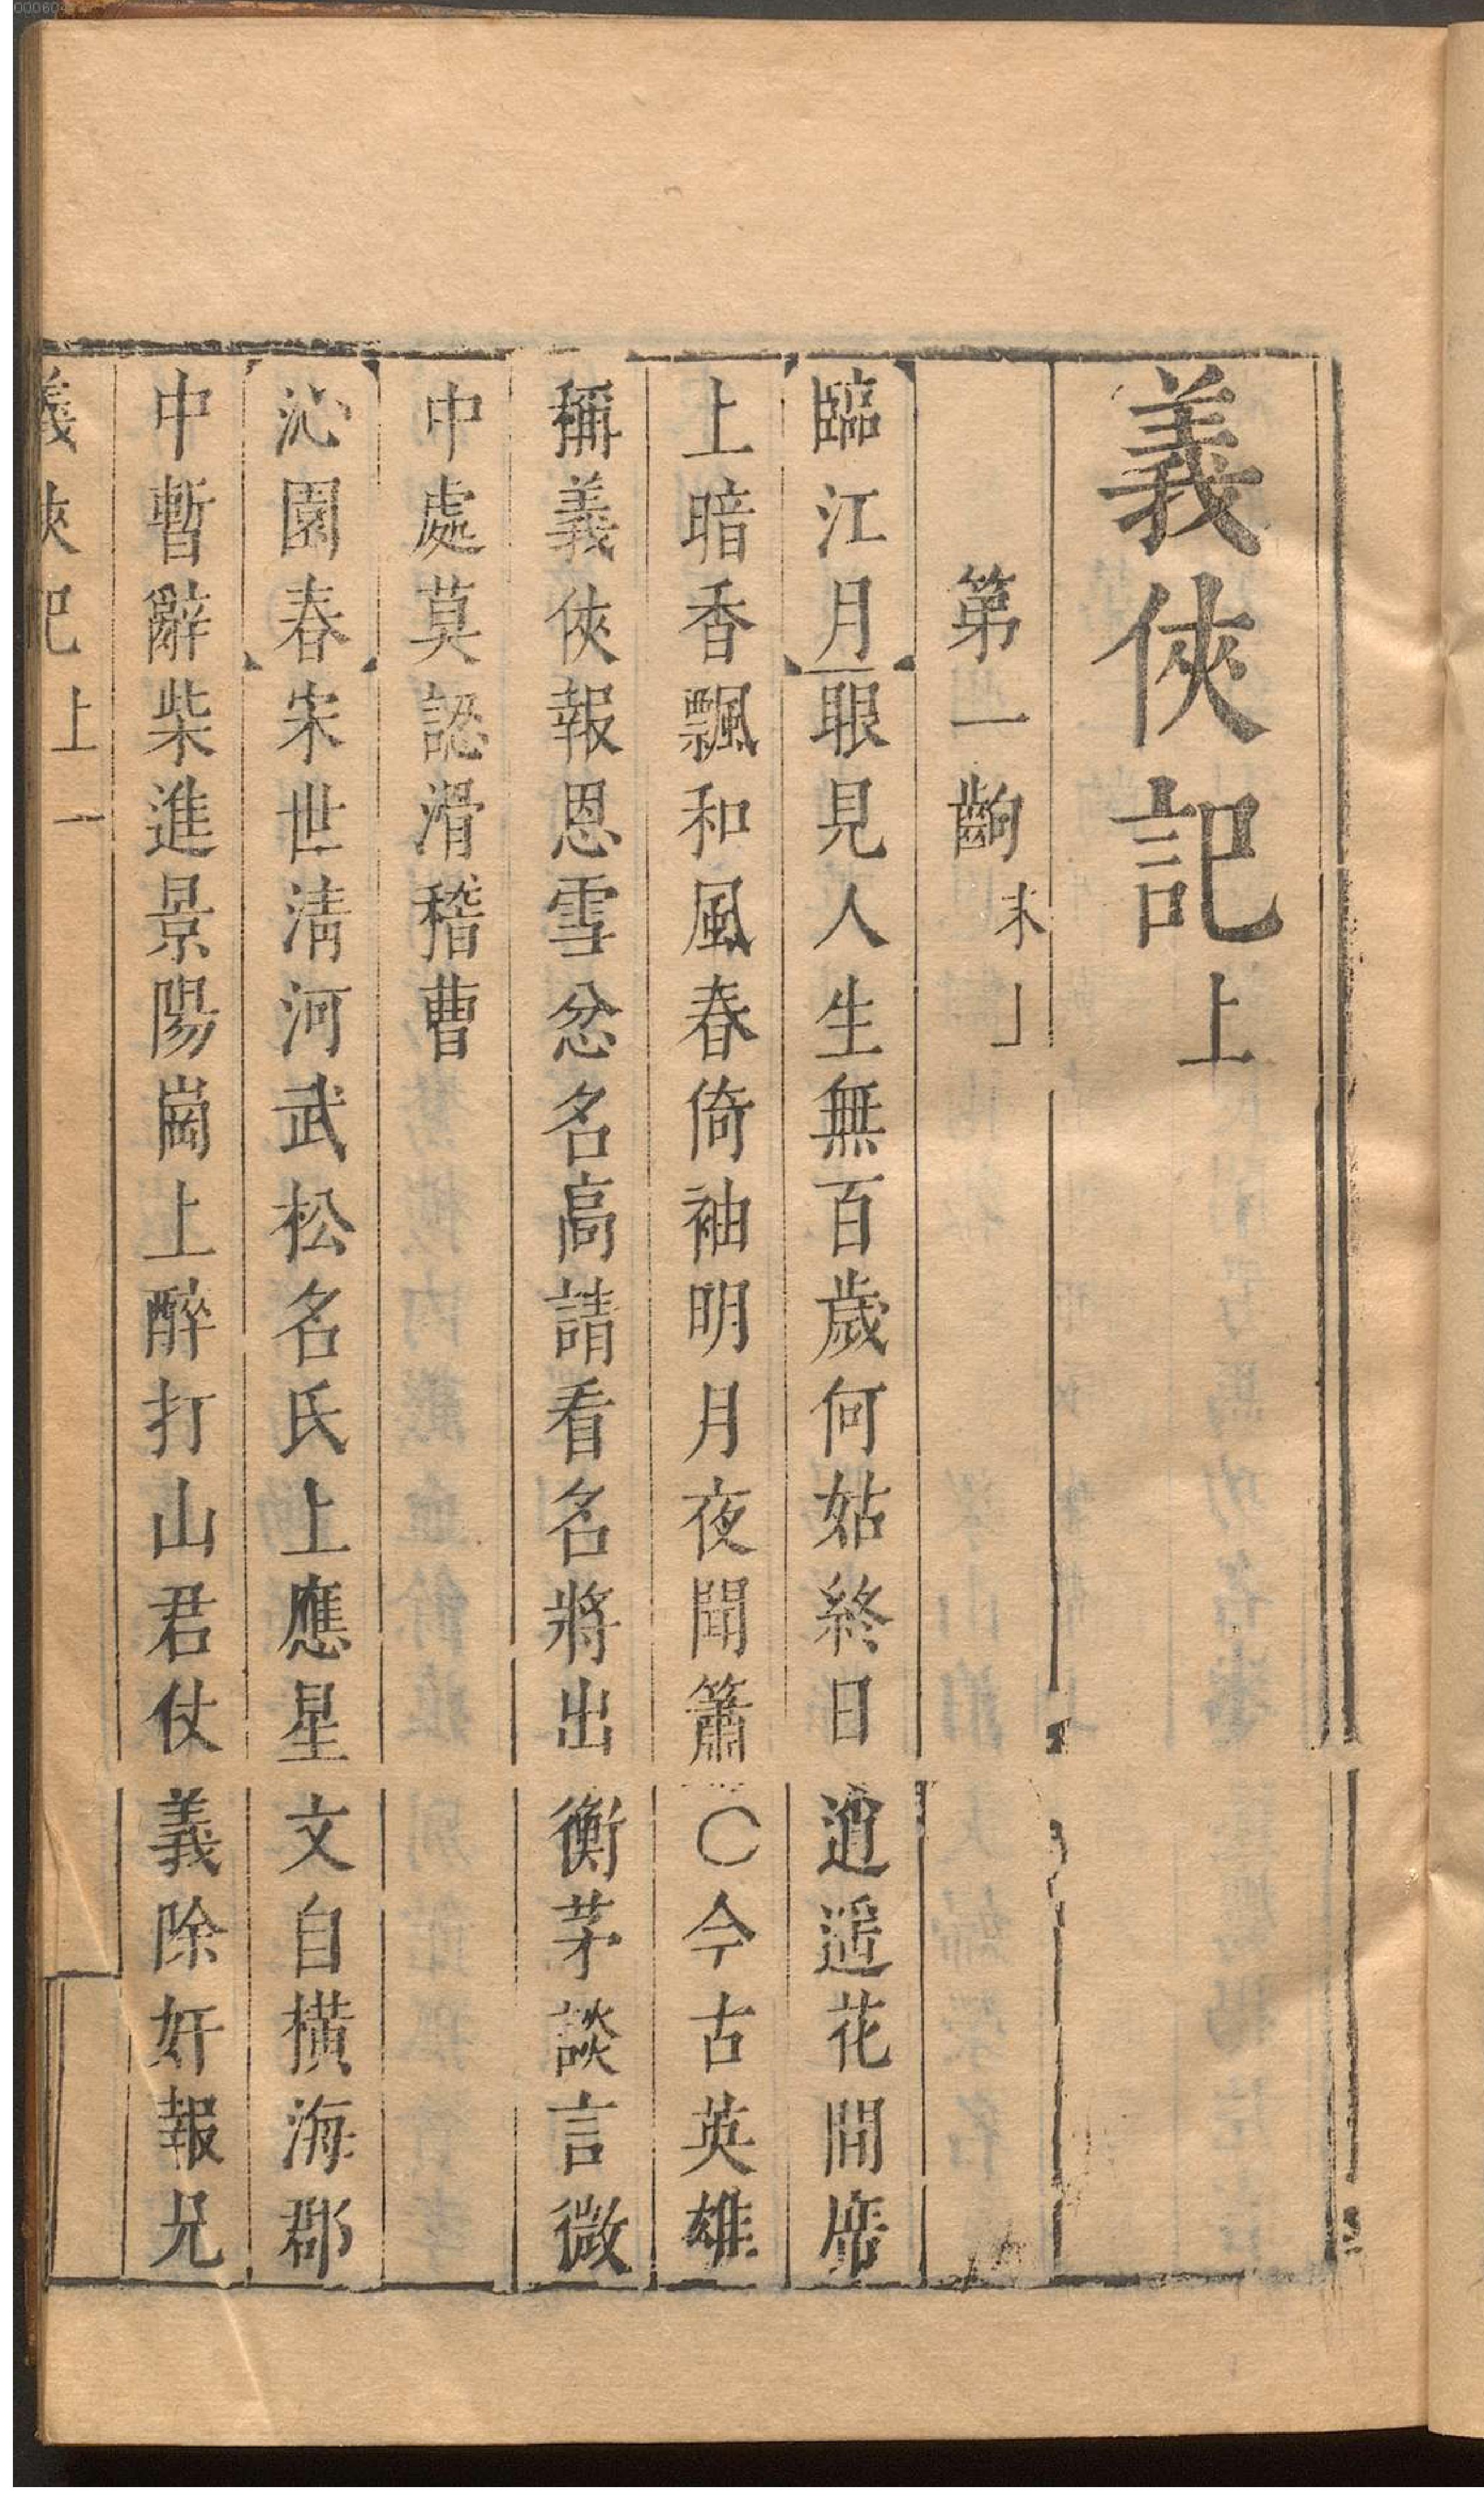 義俠記上
第一齣 末上
臨江月眼見人生無百歲何姑終日逍遥花間席
上暗香飄和風春倚袖明月夜聞簫〇今古英雄
稱義俠報恩雪忿名高請看名將出衡茅談言微
中處莫認滑稽曹
沁園春宋世淸河武松名氏上應星文自橫海郡
中暫辭柴進景陽崗上醉打山君仗義除奸報兄
義俠記 上 一